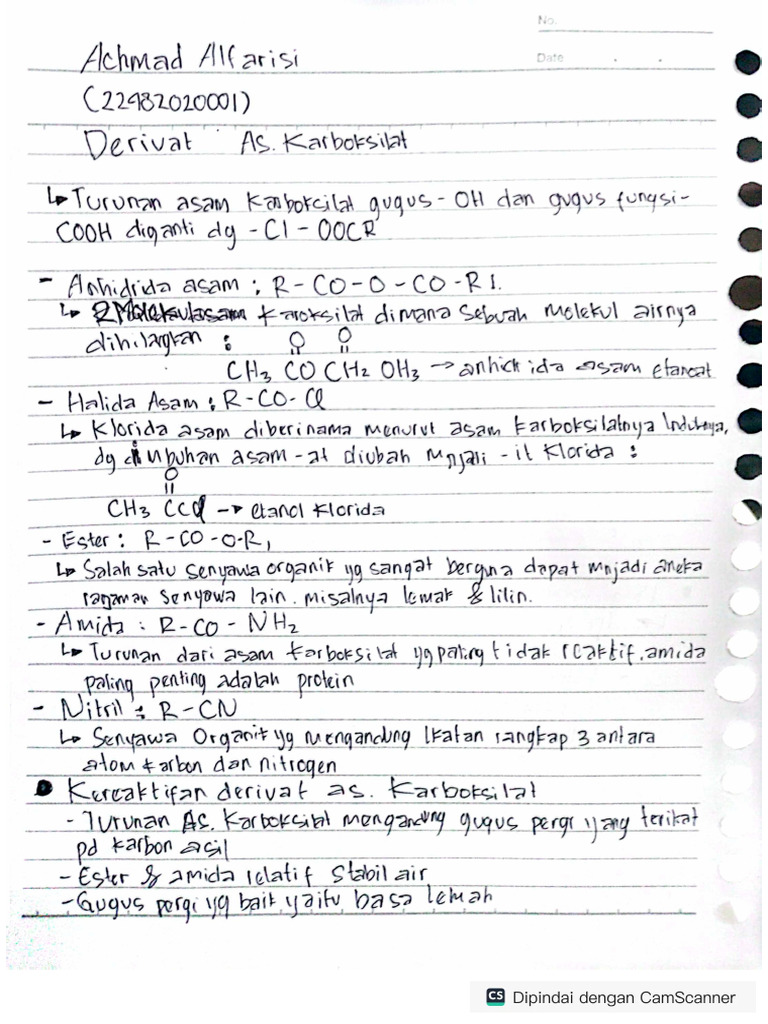 No.
Date
Achmad Alfarisi
(22482020001)
Derivat As. Karboksilat
↳ Turunan asam karboksilat gugus - OH dan gugus fungsi -
COOH diganti dg - Cl - OOCR
- Anhidrida asam : R - CO - O - CO - R1.
↳ 2 Molekul asam karoksilat dimana sebuah molekul airnya
dihilangkan :
O O
CH3 CO CH2 OH3 → anhidrida asam etanoat
- Halida Asam : R - CO - Cl
↳ Klorida asam diberinama menurut asam karboksilatnya Induknya,
dg imbuhan asam - at diubah mnjadi - il klorida :
O
CH3 CCl → etanol klorida
- Ester : R - CO - O - R1
↳ Salah satu senyawa organik yg sangat berguna dapat mnjadi aneka
ragaman senyawa lain. misalnya lemak & lilin.
- Amida : R - CO - NH2
↳ Turunan dari asam karboksilat yg paling tidak reaktif. amida
paling penting adalah protein
- Nitril : R - CN
↳ Senyawa Organik yg mengandung Ikatan rangkap 3 antara
atom karbon dan nitrogen
● Kereaktifan derivat as. Karboksilat
- Turunan As. Karboksilat mengandung gugus pergi yang terikat
pd karbon asil
- Ester & amida relatif stabil air
- Gugus pergi yg baik yaitu basa lemah
CS Dipindai dengan CamScanner